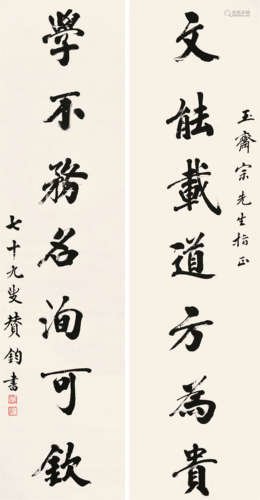 文能載道方為貴
玉齋宗先生指正
學不務名洵可欽
七十九叟贊鈞書